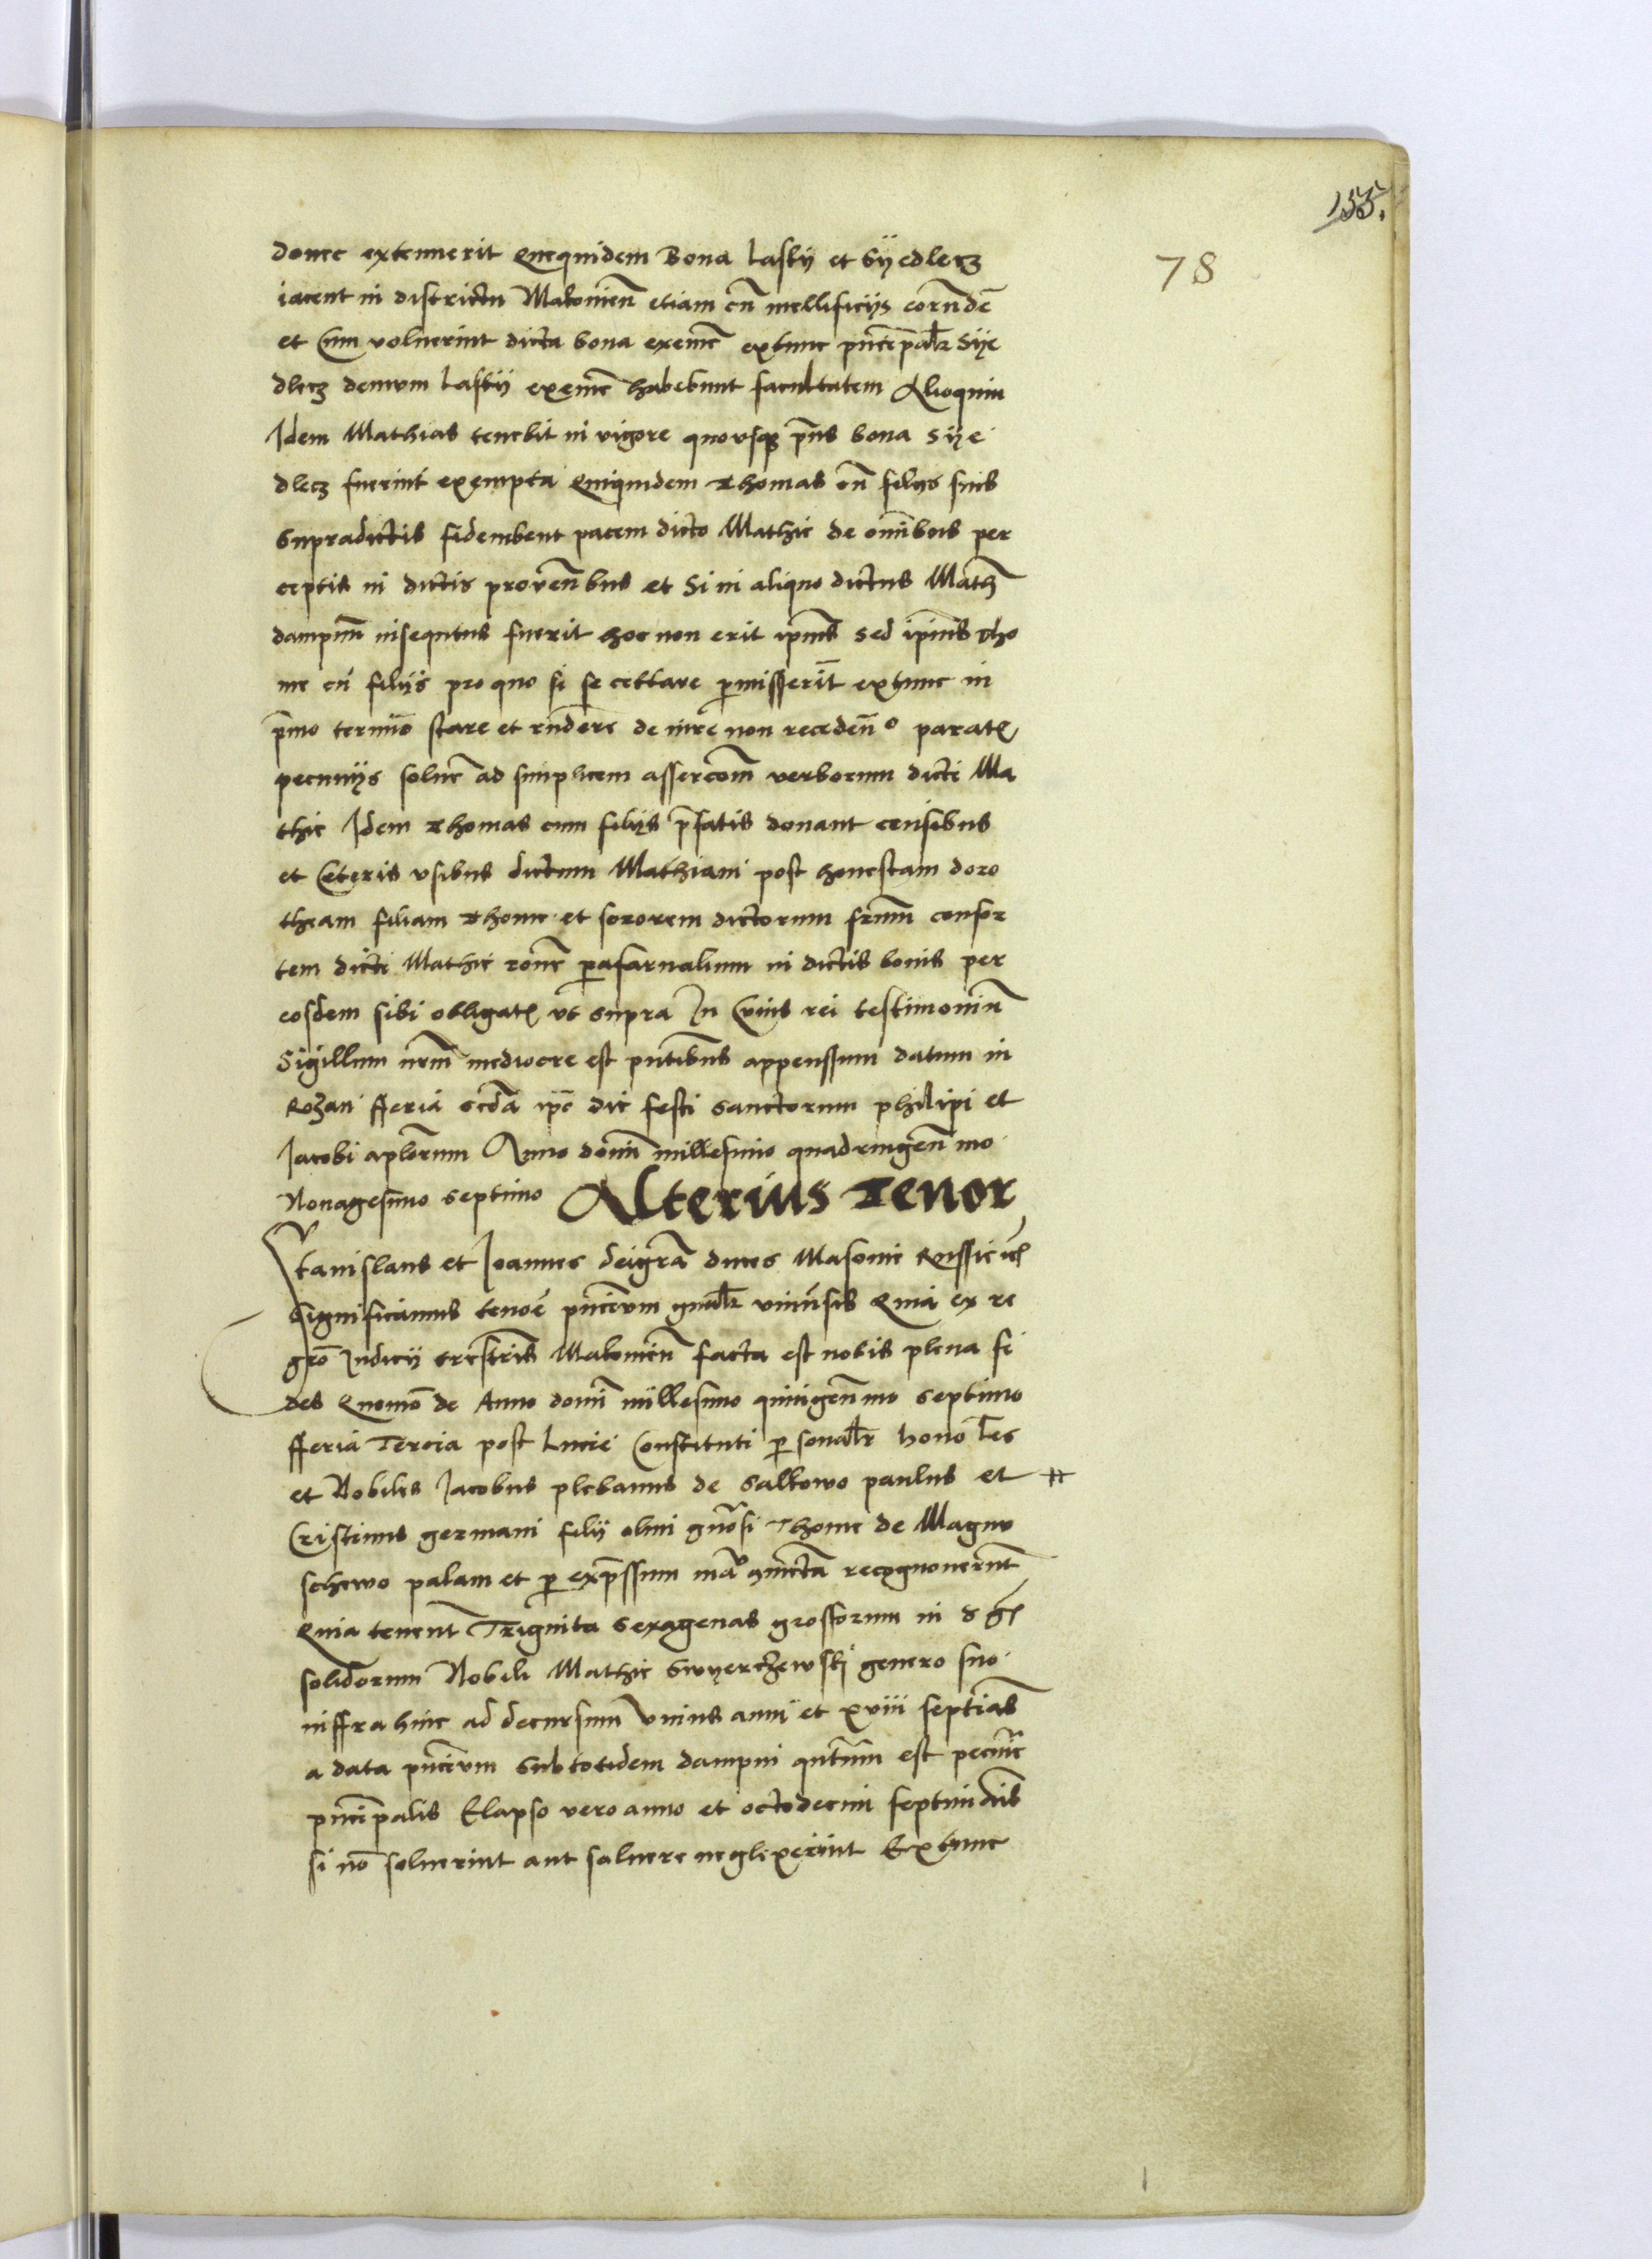 155.
78
donec extenuerit Quequidem Bona Lasky et Syedlecz
iacent in districtu Makouien̄ etiam cū mellificijs eorundē
et Cum voluerint dicta bona exemē extunc pn̄cipalr̄ Sije
dlecz demum Laskij exemē habebunt facultatem Alioquin
Idem Mathias tenebit in vigore quousqȝ pn̄s bona Sije
dlecz fuerint exempta Quiquidem Thomas cū filijs suis
supradictis fidembent pacem dicto Mathie de om̄ibus per
ceptis in dictis proven̄bus et Si in aliquo dictus Math̄
dampnū insequtus fuerit hoc non erit ipīus sed ipīus Tho
me cū filijs pro quo si se cettare pmisserīt extunc in
pīmo termīo stare et rn̄dere de iure non receden̄o parat
pecunijs soluē ad simplicem assercōm verborum dicti Ma
thie Idem Thomas cum filijs pfatis donant censibus
et Ceteris vsibus dictum Mathiam post honestam doro
theam filiam Thome et sororem dictorum frm̄ consor
tem dicti Mathie rōne pafarnalium in dictis bonis per
eosdem sibi obligat vt supra In Cuius rei testimoniū
Sigillum nrm̄ mediocre est pn̄tibus appenssum datum in
Rozan fferia scdā ipō die festi sanctorum philipi et
Jacobi aplōrum Anno domī millesimo quadringen̄mo
Nonagesimo septimo Alterius Tenor
Stanislaus et Joannes deigrā duces Masouie Russie
Significamus tenoē pn̄cium gnalr̄ vniūsis Quia ex re
grō Judicij trestris Makouien̄ facta est nobis plena fi
des Quomō de Anno domī millesimo quingen̄mo septimo
fferia Tercia post Lucie Constituti psonalr̄ honoles
et Nobiles Jacobus plebanus de Salkowo paulus et
Cristinus germani filij olim gnōsi Thome de Magnu
schewo palam et p expssum recognouerūt
Quia tenent Triginta sexagenas grossorum in
solidorum Nobili Mathie Swyerczewski genero suo
inffra hinc ad decursum Vnius anni et xviii septias
a data pn̄cium sub totidem dampni qntum̄ est pecuniē
pn̄cipalis Elapso vero anno et octodecim septimāis
si nō soluerint aut saluere neglixerint Extunc